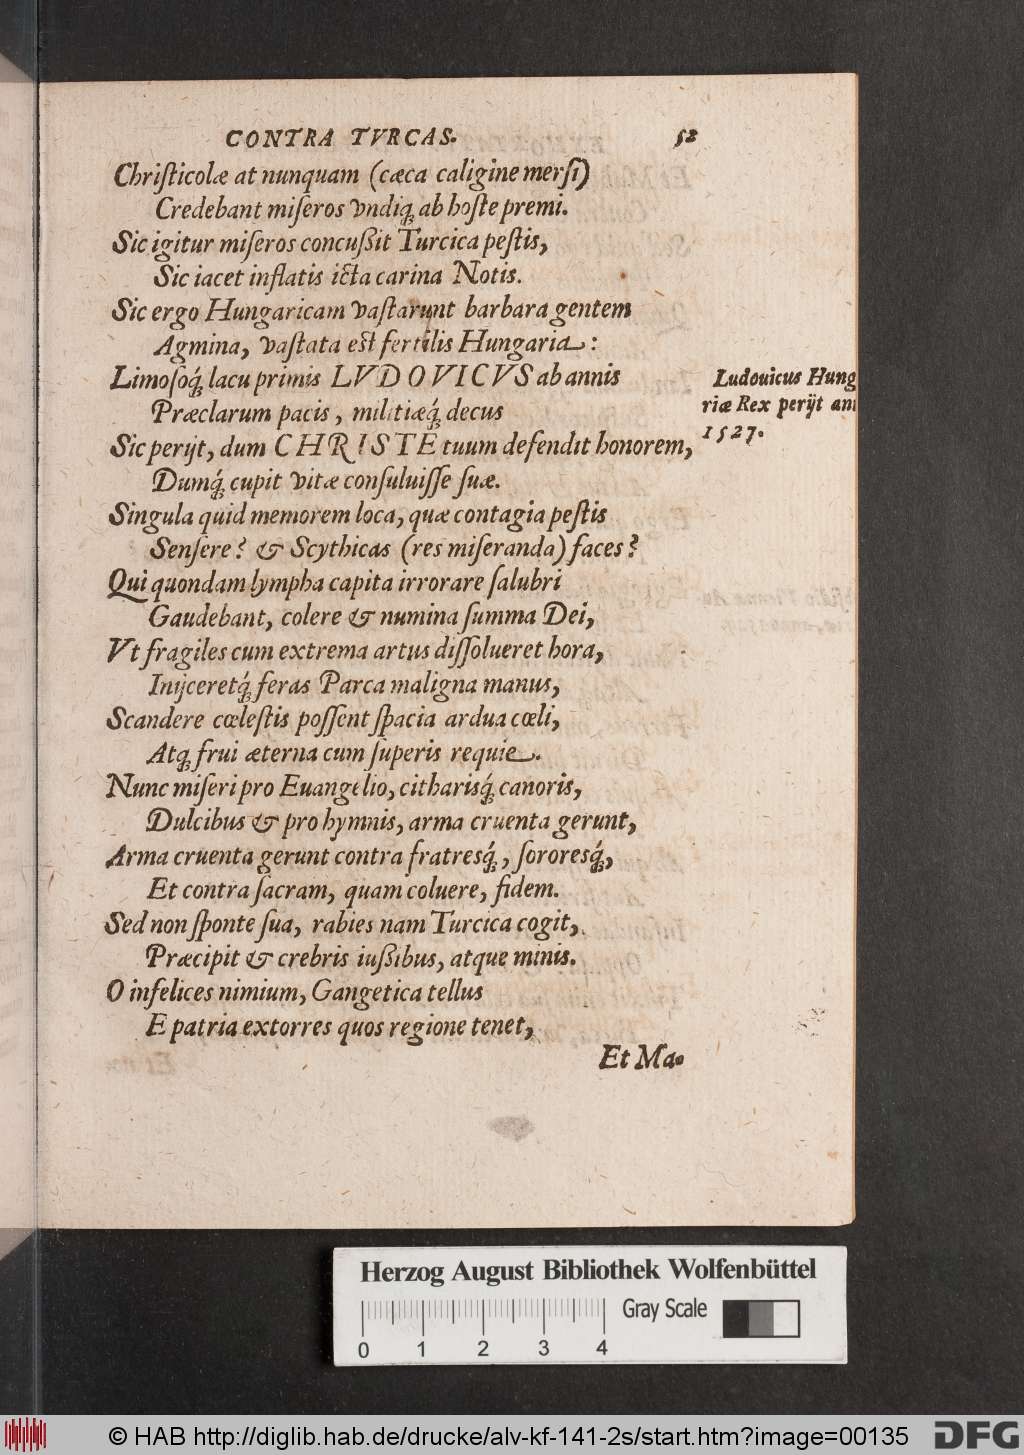 CONTRA TVRCAS. 52
Chriſticolæ at nunquam (cæca caligine merſi)
Credebant miſeros vndiq́; ab hoſte premi.
Sic igitur miſeros concußit Turcica peſtis,
Sic iacet inflatis icta carina Notis.
Sic ergo Hungaricam vaſtarunt barbara gentem
Agmina, vaſtata eſt fertilis Hungaria:
Limoſoq́; lacu primis LVDOVICVS ab annis
Præclarum pacis, militiæq́; decus
Sic perijt, dum CHRISTE tuum defendit honorem,
Dumq́; cupit vitæ conſuluiſſe ſuæ.
Singula quid memorem loca, quæ contagia peſtis
Senſere? & Scythicas (res miſeranda) faces?
Qui quondam lympha capita irrorare ſalubri
Gaudebant, colere & numina ſumma Dei,
Vt fragiles cum extrema artus diſſolueret hora,
Inijceretq́; feras Parca maligna manus,
Scandere cœleſtis poſſent ſpacia ardua cœli,
Atq; frui æterna cum ſuperis requie.
Nunc miſeri pro Euangelio, citharisq́; canoris,
Dulcibus & pro hymnis, arma cruenta gerunt,
Arma cruenta gerunt contra fratresq́;, ſororesq́;,
Et contra ſacram, quam coluere, fidem.
Sed non ſponte ſua, rabies nam Turcica cogit,
Præcipit & crebris iußibus, atque minis.
O infelices nimium, Gangetica tellus
E patria extorres quos regione tenet,
Et Ma-
Ludouicus Hung
riæ Rex perijt an
1527.
Herzog August Bibliothek Wolfenbüttel
Gray Scale
0 1 2 3 4
© HAB http://diglib.hab.de/drucke/alv-kf-141-2s/start.htm?image=00135
DFG